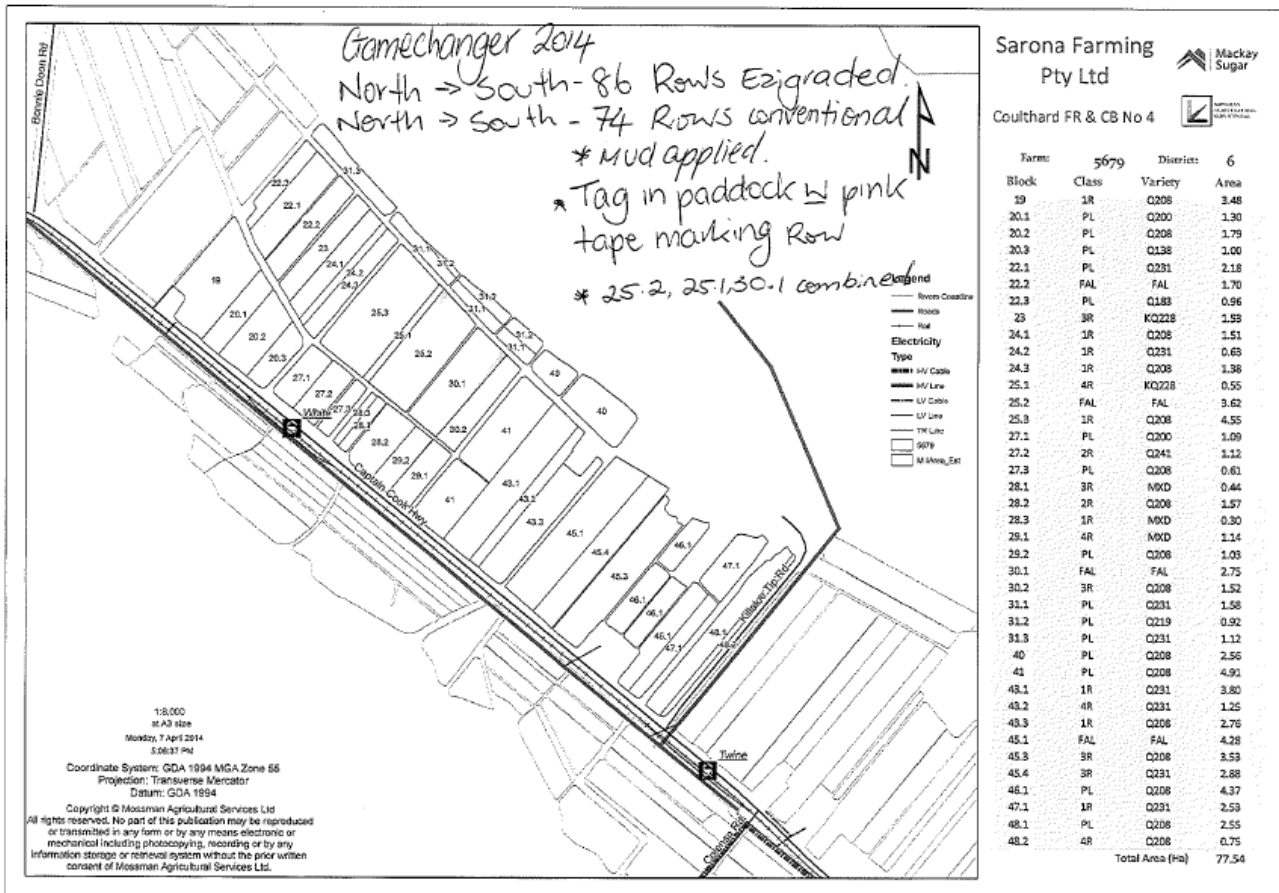 Gamechanger 2014
North -> South - 86 Rows Ezigraded.
North -> South - 74 Rows conventional
* Mud applied.
* Tag in paddock w pink
tape marking Row
* 25.2, 25.1, 30.1 combined
N
Bonnie Doon Rd
31.3
22.3
22.1
22.2
23
24.1
24.2
24.3
19
20.1
20.2
20.3
25.3
25.1
25.2
31.1
31.2
31.1
31.2
31.1
31.2
40
40
27.1
27.2
27.3
28.3
28.1
28.2
29.2
29.1
30.1
30.2
41
41
43.1
43.2
43.3
45.1
45.4
45.3
46.1
46.1
46.1
46.1
47.1
47.1
48.1
48.2
White
Captain Cook Hwy
Killaloe Tip Rd
Twine
Legend
Rivers Coastline
Roads
Rail
Electricity
Type
HV Cable
HV Line
LV Cable
LV Line
TR Line
5679
MillArea_Ext
1:8,000
at A3 size
Monday, 7 April 2014
5:06:37 PM
Coordinate System: GDA 1994 MGA Zone 55
Projection: Transverse Mercator
Datum: GDA 1994
Copyright © Mossman Agricultural Services Ltd
All rights reserved. No part of this publication may be reproduced
or transmitted in any form or by any means electronic or
mechanical including photocopying, recording or by any
information storage or retrieval system without the prior written
consent of Mossman Agricultural Services Ltd.
Sarona Farming
Pty Ltd
Mackay
Sugar
Coulthard FR & CB No 4
Farm: 5679 District: 6
Block Class Variety Area
19 1R Q208 3.48
20.1 PL Q200 1.30
20.2 PL Q208 1.79
20.3 PL Q138 1.00
22.1 PL Q231 2.18
22.2 FAL FAL 1.70
22.3 PL Q183 0.96
23 3R KQ228 1.53
24.1 1R Q208 1.51
24.2 1R Q231 0.63
24.3 1R Q208 1.38
25.1 4R KQ228 0.55
25.2 FAL FAL 3.62
25.3 1R Q208 4.55
27.1 PL Q200 1.09
27.2 2R Q241 1.12
27.3 PL Q208 0.61
28.1 3R MXD 0.44
28.2 2R Q208 1.57
28.3 1R MXD 0.30
29.1 4R MXD 1.14
29.2 PL Q208 1.03
30.1 FAL FAL 2.75
30.2 3R Q208 1.52
31.1 PL Q231 1.58
31.2 PL Q219 0.92
31.3 PL Q231 1.12
40 PL Q208 2.56
41 PL Q208 4.91
43.1 1R Q231 3.80
43.2 4R Q231 1.25
43.3 1R Q208 2.76
45.1 FAL FAL 4.28
45.3 3R Q208 3.53
45.4 3R Q231 2.88
46.1 PL Q208 4.37
47.1 1R Q231 2.53
48.1 PL Q208 2.55
48.2 4R Q208 0.75
Total Area (Ha) 77.54